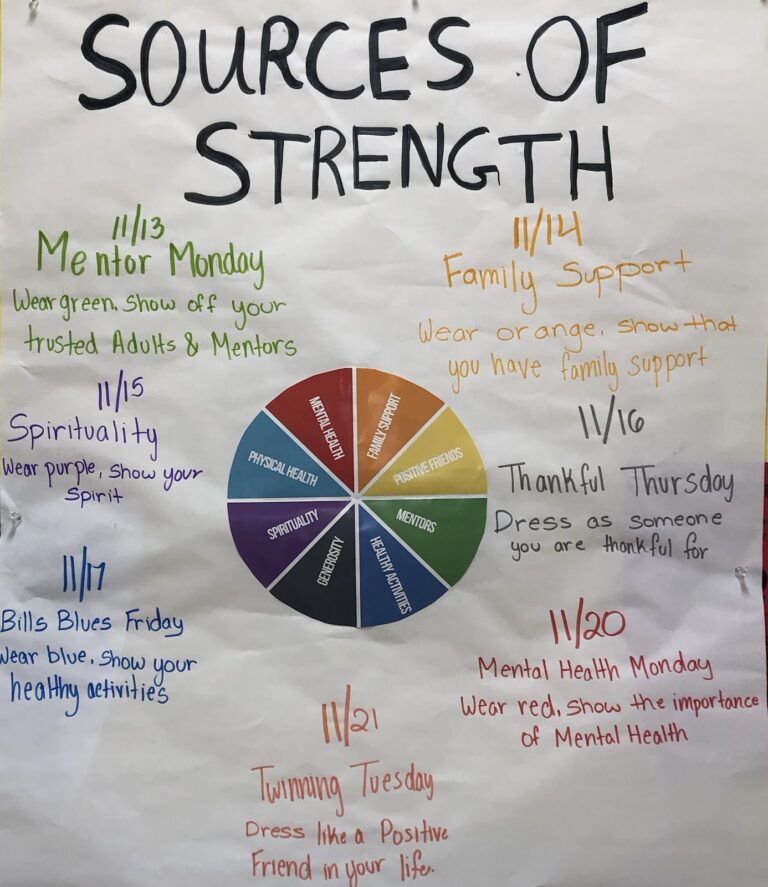 SOURCES OF
STRENGTH
11/13
Mentor Monday
Wear green. Show off your
trusted Adults & Mentors
11/14
Family Support
Wear orange, show that
you have family support
11/15
Spirituality
Wear purple, show your
Spirit
11/16
Thankful Thursday
Dress as someone
you are thankful for
MENTAL HEALTH
FAMILY SUPPORT
POSITIVE FRIENDS
MENTORS
HEALTHY ACTIVITIES
GENEROSITY
SPIRITUALITY
PHYSICAL HEALTH
11/17
Bills Blues Friday
Wear blue, show your
healthy activities
11/20
Mental Health Monday
Wear red, show the importance
of Mental Health
11/21
Twinning Tuesday
Dress like a Positive
Friend in your life.